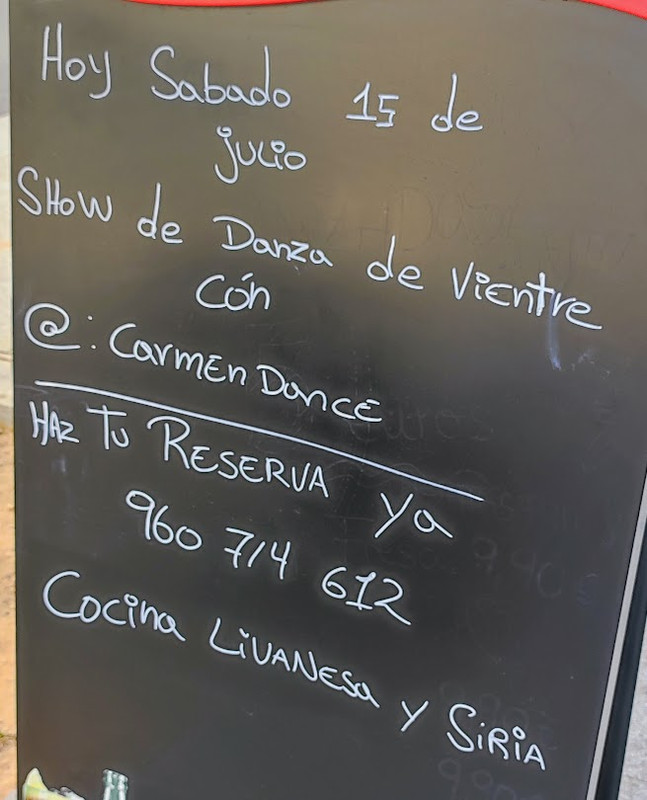 Hoy Sabado 15 de
julio
SHow de Danza de Vientre
cón
@: CarmEn DancE
HAz Tu RESERVA ya
960 714 612
Cocina LiVANESa y SiRiA